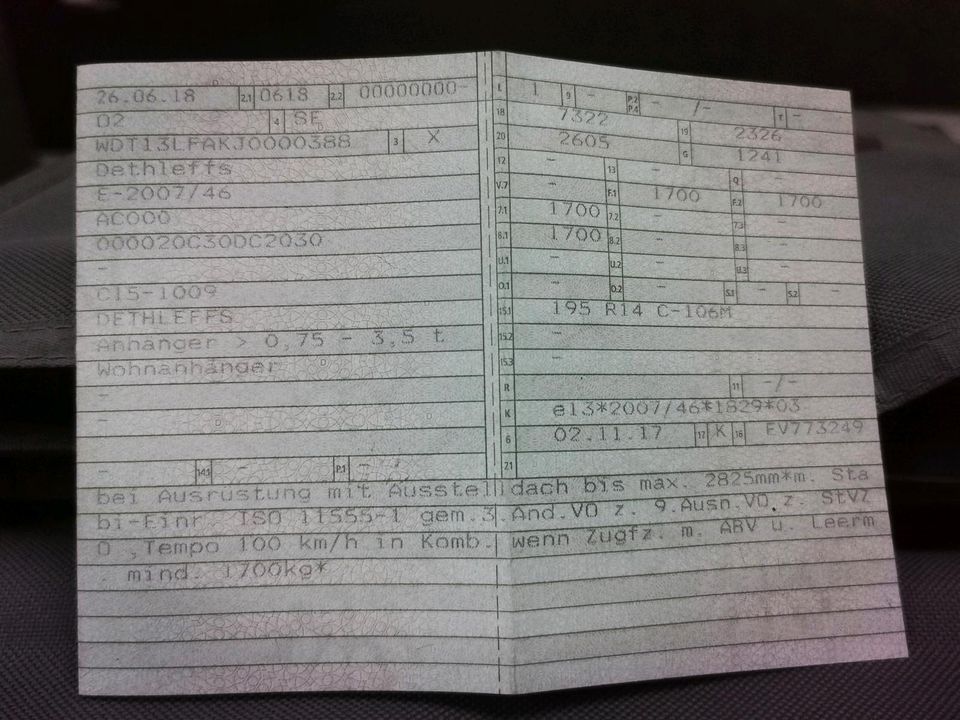 26.06.18 2.1 0618 2.2 00000000-
02 4 SE
WDT13LFAKJ0000388 3 X
Dethleffs
E-2007/46
AC000
000020C30DC2030
-
C15-1009
DETHLEFFS
Anhänger > 0,75 - 3,5 t
Wohnanhänger
-
-
- 14.1 - P.1 -
L 1 9 - P.2 P.4 - /- T -
18 7322 19 2326
20 2605 G 1241
12 - 13 - Q -
V.7 - F.1 1700 F.2 1700
7.1 1700 7.2 - 7.3 -
8.1 1700 8.2 - 8.3 -
U.1 - U.2 - U.3 -
O.1 - O.2 - S.1 - S.2 -
15.1 195 R14 C-106M
15.2 -
15.3 -
R 11 -/-
K e13*2007/46*1829*03
6 02.11.17 17 K 16 FV773249
21
bei Ausrüstung mit Ausstelldach bis max. 2825mm*m. Sta
bi-Einr. ISO 11555-1 gem.3.Änd.VO z. 9.Ausn.VO z. StVZ
O ,Tempo 100 km/h in Komb. wenn Zugfz. m. ABV u. Leerm
. mind. 1700kg*